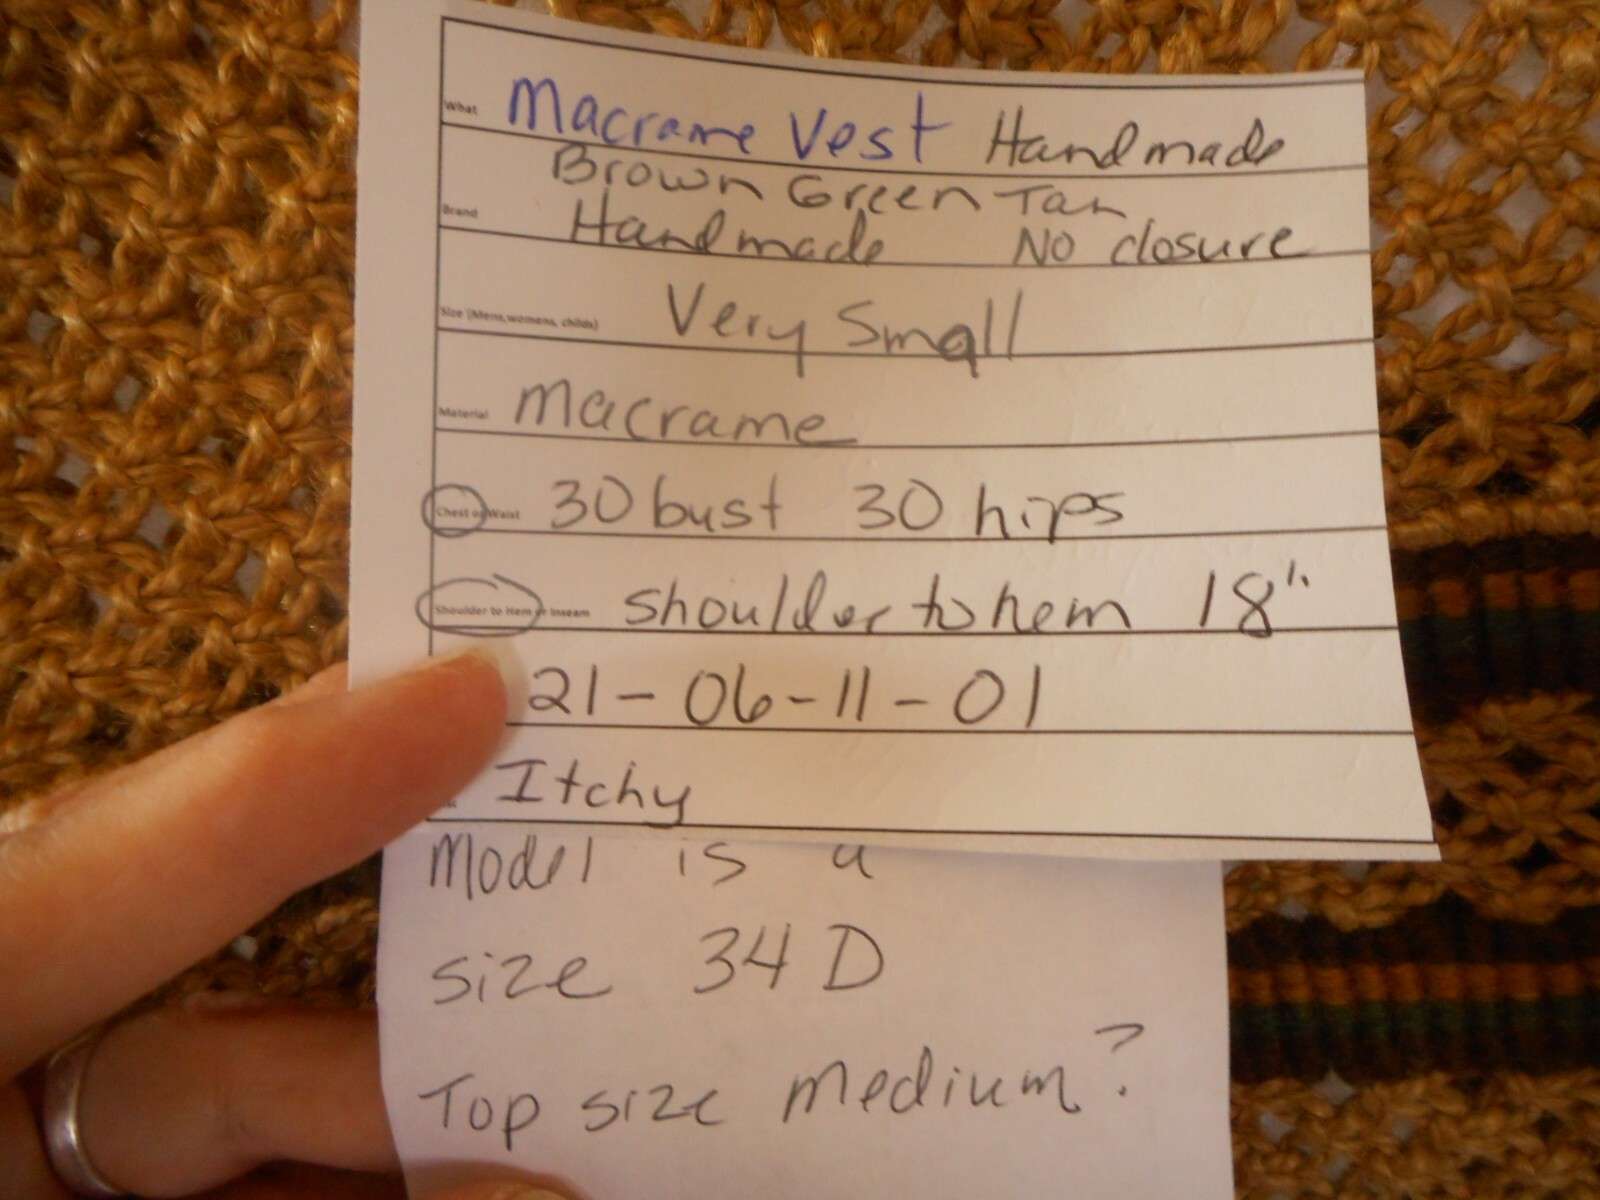 What Macrame Vest Handmade
Brown Green Tan
Brand Handmade No closure
Size (Mens, womens, childs) Very Small
Material Macrame
Chest or Waist 30 bust 30 hips
Shoulder to Hem or Inseam shoulder to hem 18"
21-06-11-01
Itchy
Model is a
size 34 D
Top size medium?